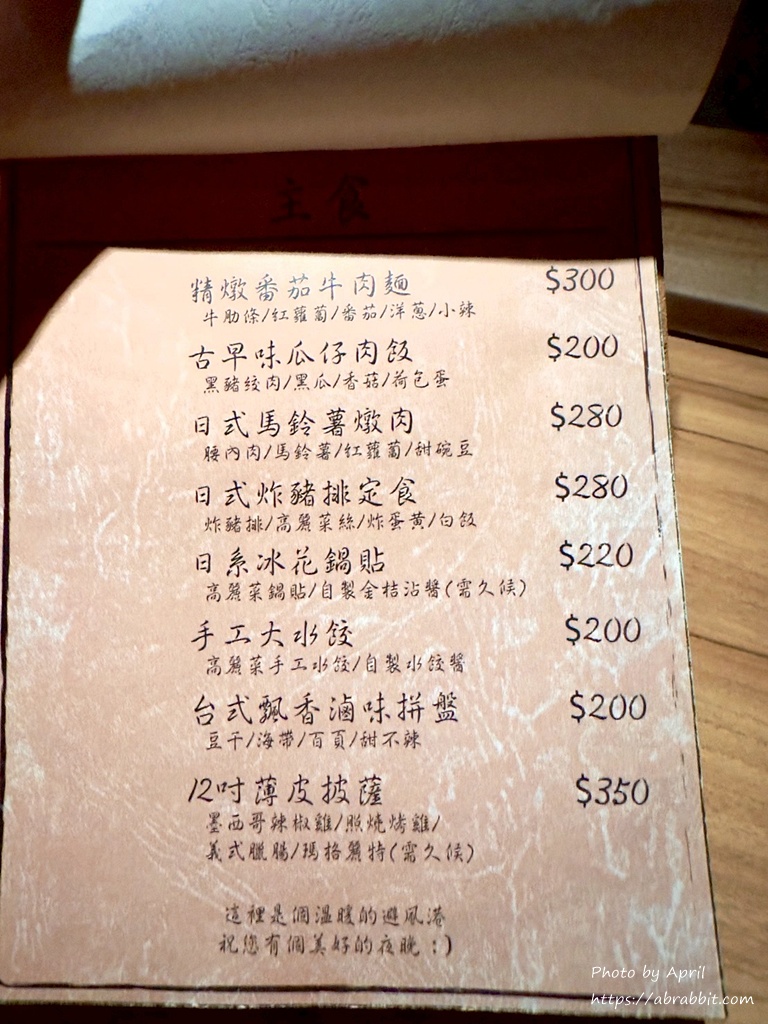 主食
精燉番茄牛肉麵 $300
牛肋條/紅蘿蔔/番茄/洋蔥/小辣
古早味瓜仔肉飯 $200
黑豬絞肉/黑瓜/香菇/荷包蛋
日式馬鈴薯燉肉 $280
腰內肉/馬鈴薯/紅蘿蔔/甜碗豆
日式炸豬排定食 $280
炸豬排/高麗菜絲/炸蛋黃/白飯
日系冰花鍋貼 $220
高麗菜鍋貼/自製金桔沾醬(需久候)
手工大水餃 $200
高麗菜手工水餃/自製水餃醬
台式飄香滷味拼盤 $200
豆干/海帶/百頁/甜不辣
12吋薄皮披薩 $350
墨西哥辣椒雞/照燒烤雞/
義式臘腸/瑪格麗特(需久候)
這裡是個溫暖的避風港
祝您有個美好的夜晚 :)
Photo by April
https://abrabbit.com